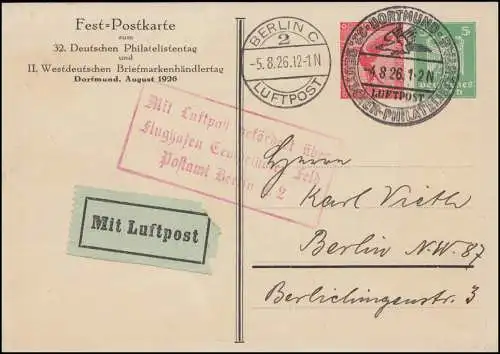 Fest=Postkarte
zum
32. Deutschen Philatelistentag
und
II. Westdeutschen Briefmarkenhändlertag
Dortmund, August 1926
BERLIN C
2
-5.8.26.12-1N
LUFTPOST
DORTMUND
-4.8 26.1-2N
LUFTPOST
5
Mit Luftpost befördert über
Flughafen Tempelhofer Feld
Postamt Berlin C 2
Mit Luftpost
Herrn
Karl Vieth
Berlin N.W. 87
Berlichingenstr. 3